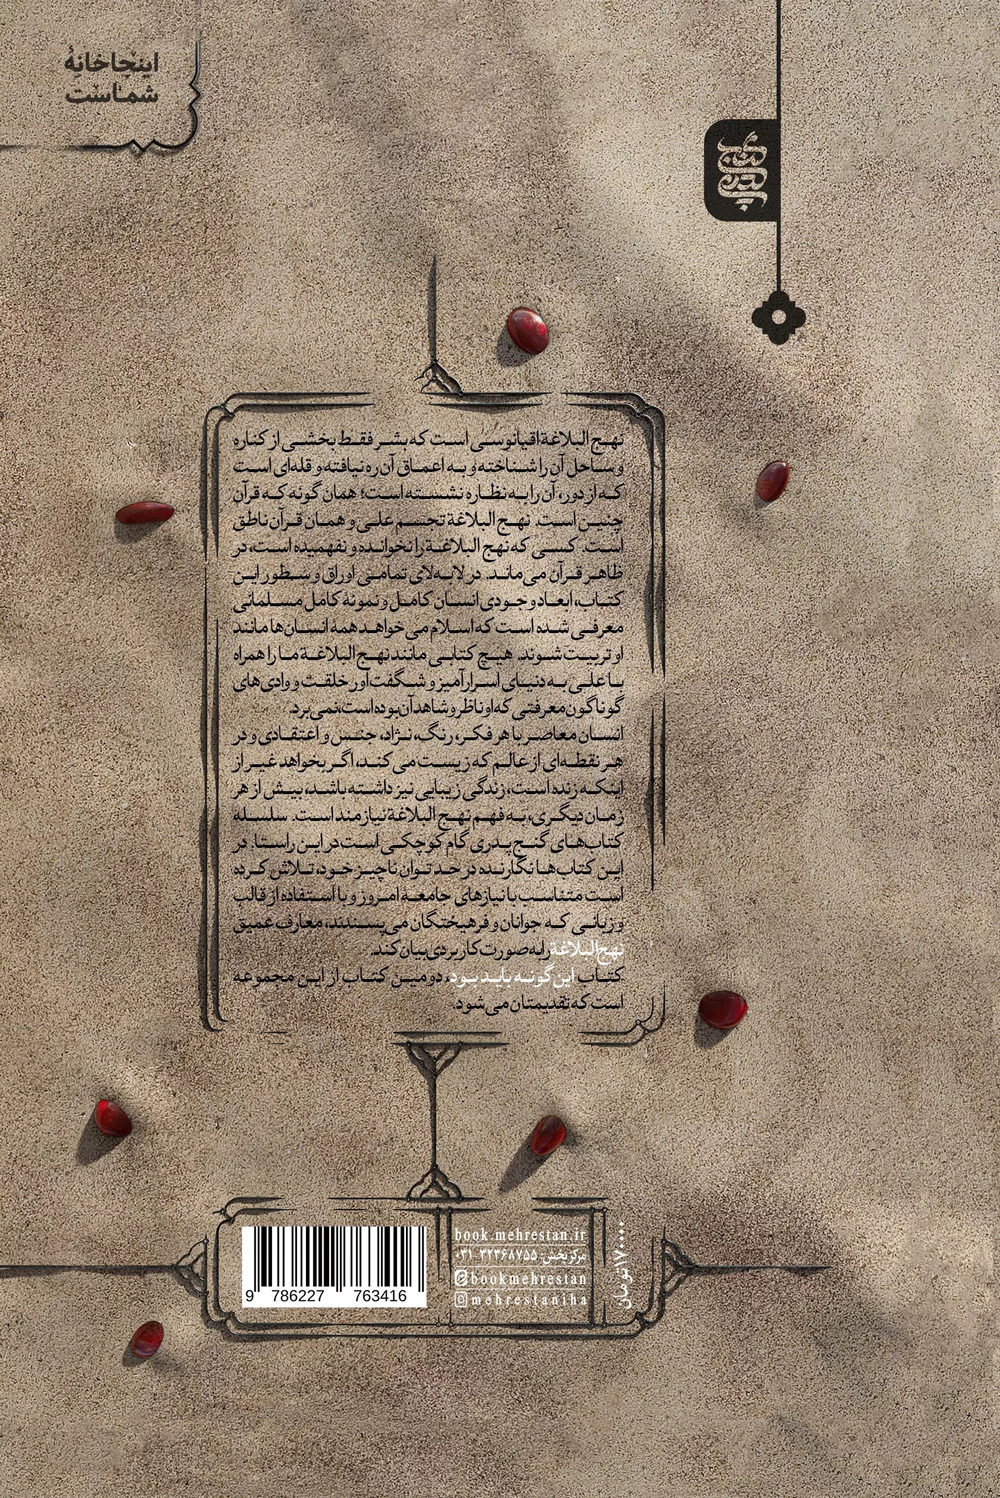 اینجا خانهٔ
شماست
گنج
پدری
نهج البلاغة اقیانوسی است که بشر فقط بخشی از کناره
و ساحل آن را شناخته و به اعماق آن ره نیافته و قله‌ای است
که از دور، آن را به نظاره نشسته است؛ همان گونه که قرآن
چنین است. نهج البلاغة تجسم علی و همان قرآن ناطق
است. کسی که نهج البلاغة را نخوانده و نفهمیده است، در
ظاهر قرآن می‌ماند. در لابه‌لای تمامی اوراق و سطور این
کتاب، ابعاد وجودی انسان کامل و نمونهٔ کامل مسلمانی
معرفی شده است که اسلام می‌خواهد همهٔ انسان‌ها مانند
او تربیت شوند. هیچ کتابی مانند نهج البلاغة ما را همراه
با علی به دنیای اسرارآمیز و شگفت‌آور خلقت و وادی‌های
گوناگون معرفتی که او ناظر و شاهد آن بوده است، نمی‌برد.
انسان معاصر با هر فکر، رنگ، نژاد، جنس و اعتقادی و در
هر نقطه‌ای از عالم که زیست می‌کند، اگر بخواهد غیر از
اینکه زنده است، زندگی زیبایی نیز داشته باشد، بیش از هر
زمان دیگری، به فهم نهج البلاغة نیازمند است. سلسله
کتاب‌های گنج پدری گام کوچکی است در این راستا. در
این کتاب‌ها نگارنده در حد توان ناچیز خود، تلاش کرده
است متناسب با نیازهای جامعهٔ امروز و با استفاده از قالب
و زبانی که جوانان و فرهیختگان می‌پسندند، معارف عمیق
نهج البلاغة را به صورت کاربردی بیان کند.
کتاب این گونه باید بود، دومین کتاب از این مجموعه
است که تقدیمتان می‌شود.
book.mehrestan.ir
مرکز پخش: ۳۲۳۶۸۷۵۵ ۰۳۱
bookmehrestan
mehrestaniha
۱۷۰۰۰۰ تومان
9 786227 763416